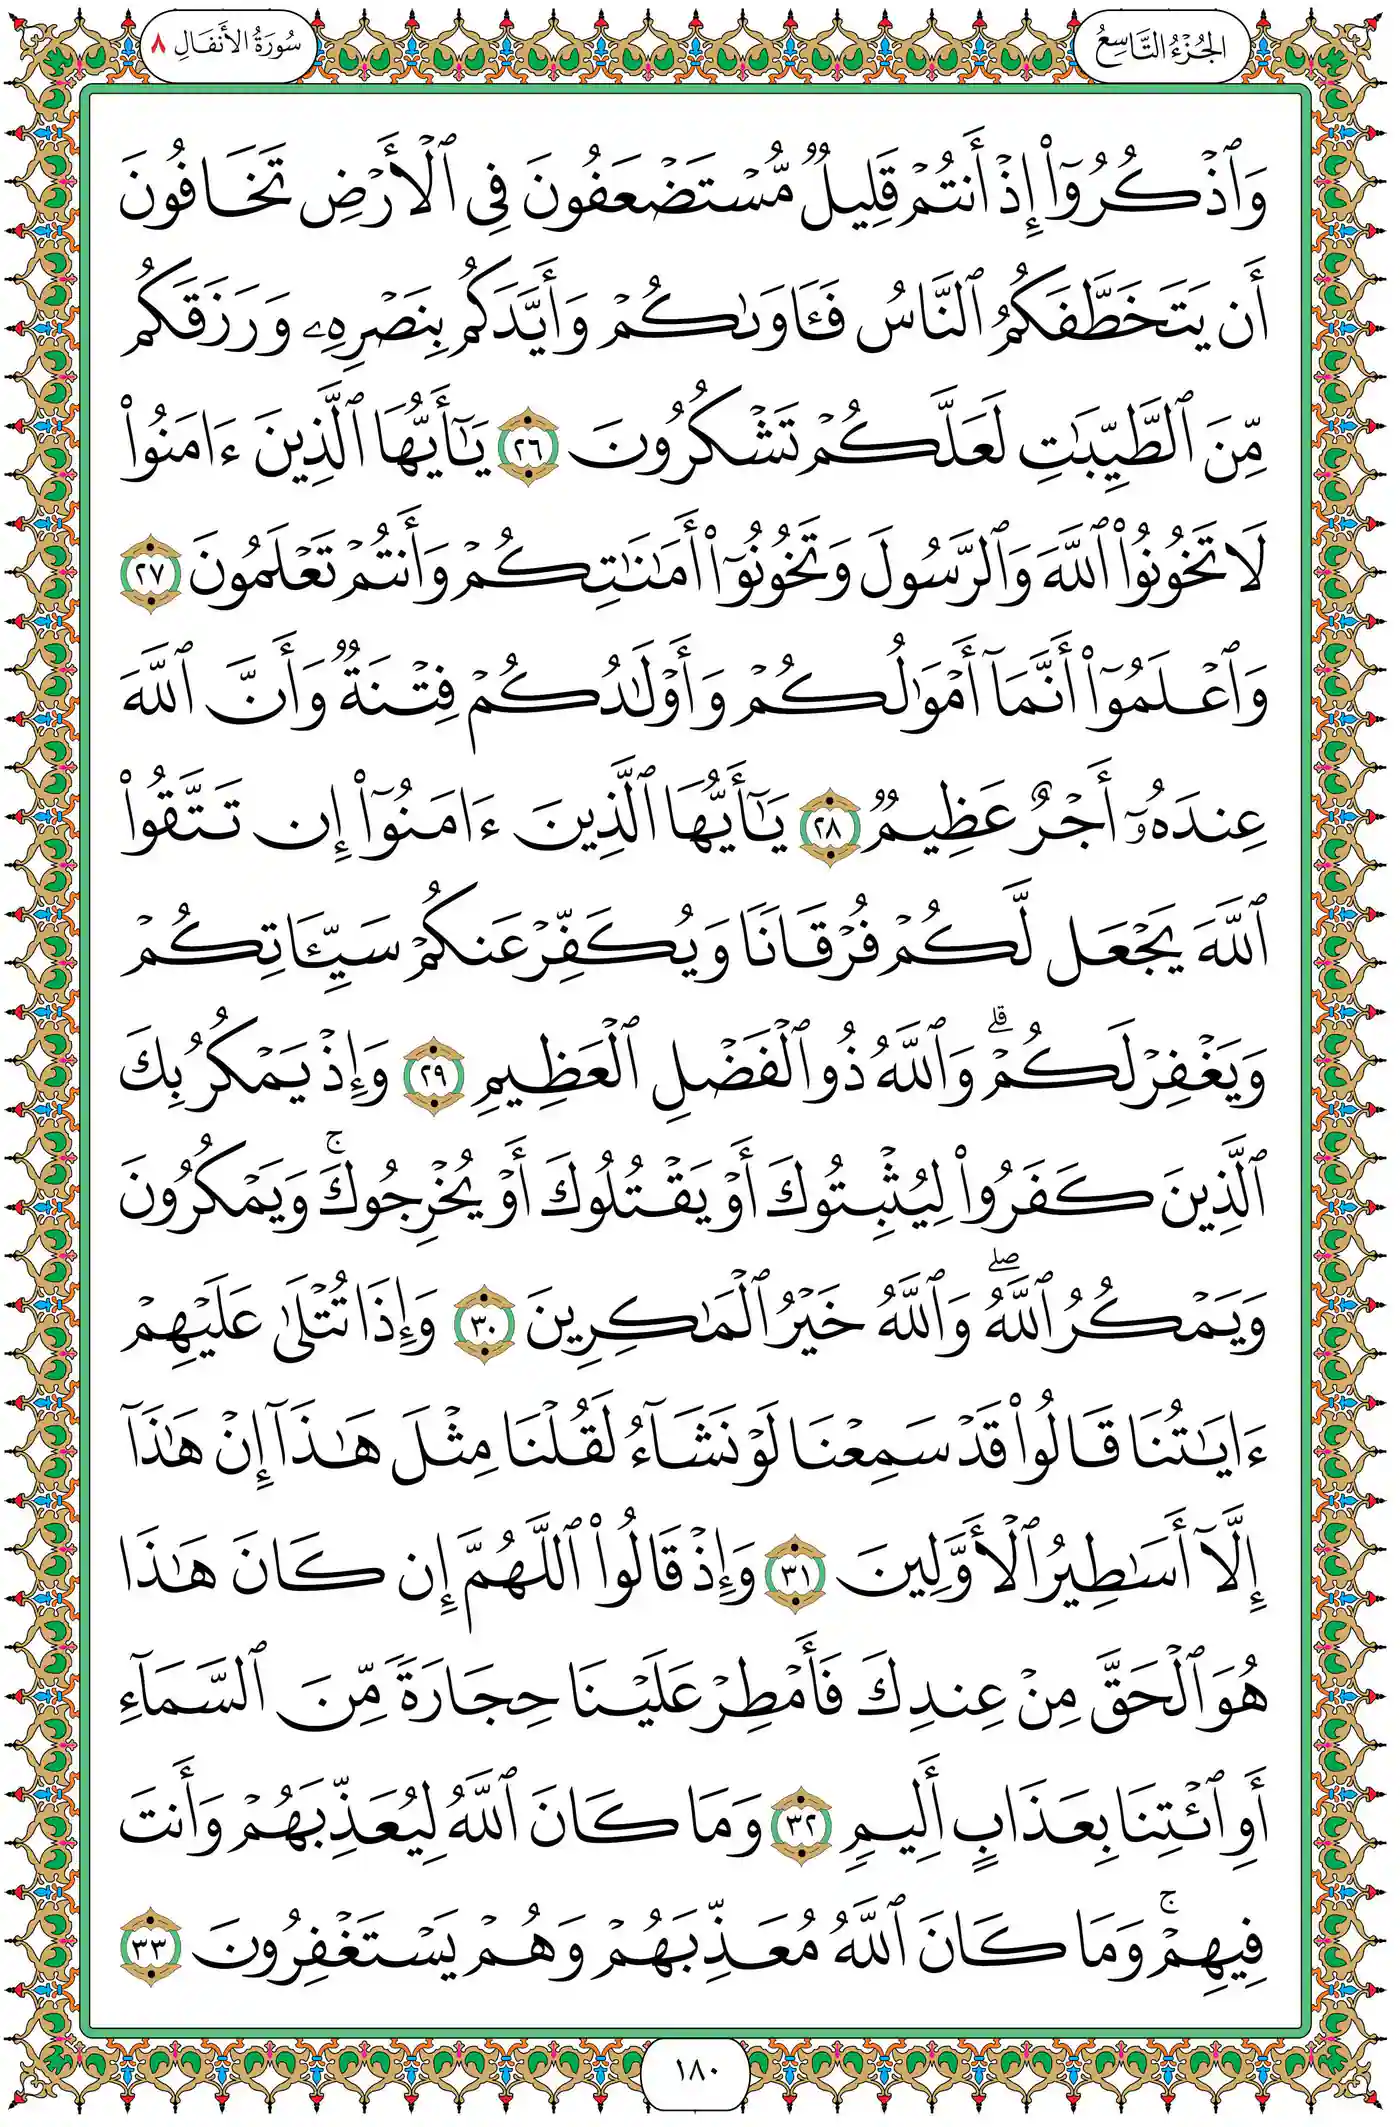 الجُزْءُ التَّاسِعُ
سُورَةُ الأَنفَالِ ٨
وَٱذۡكُرُوٓاْ إِذۡ أَنتُمۡ قَلِيلٞ مُّسۡتَضۡعَفُونَ فِي ٱلۡأَرۡضِ تَخَافُونَ
أَن يَتَخَطَّفَكُمُ ٱلنَّاسُ فَـَٔاوَىٰكُمۡ وَأَيَّدَكُم بِنَصۡرِهِۦ وَرَزَقَكُم
مِّنَ ٱلطَّيِّبَٰتِ لَعَلَّكُمۡ تَشۡكُرُونَ ٢٦ يَٰٓأَيُّهَا ٱلَّذِينَ ءَامَنُواْ
لَا تَخُونُواْ ٱللَّهَ وَٱلرَّسُولَ وَتَخُونُوٓاْ أَمَٰنَٰتِكُمۡ وَأَنتُمۡ تَعۡلَمُونَ ٢٧
وَٱعۡلَمُوٓاْ أَنَّمَآ أَمۡوَٰلُكُمۡ وَأَوۡلَٰدُكُمۡ فِتۡنَةٞ وَأَنَّ ٱللَّهَ
عِندَهُۥٓ أَجۡرٌ عَظِيمٞ ٢٨ يَٰٓأَيُّهَا ٱلَّذِينَ ءَامَنُوٓاْ إِن تَتَّقُواْ
ٱللَّهَ يَجۡعَل لَّكُمۡ فُرۡقَانٗا وَيُكَفِّرۡ عَنكُمۡ سَيِّـَٔاتِكُمۡ
وَيَغۡفِرۡ لَكُمۡۗ وَٱللَّهُ ذُو ٱلۡفَضۡلِ ٱلۡعَظِيمِ ٢٩ وَإِذۡ يَمۡكُرُ بِكَ
ٱلَّذِينَ كَفَرُواْ لِيُثۡبِتُوكَ أَوۡ يَقۡتُلُوكَ أَوۡ يُخۡرِجُوكَۚ وَيَمۡكُرُونَ
وَيَمۡكُرُ ٱللَّهُۖ وَٱللَّهُ خَيۡرُ ٱلۡمَٰكِرِينَ ٣٠ وَإِذَا تُتۡلَىٰ عَلَيۡهِمۡ
ءَايَٰتُنَا قَالُواْ قَدۡ سَمِعۡنَا لَوۡ نَشَآءُ لَقُلۡنَا مِثۡلَ هَٰذَآ إِنۡ هَٰذَآ
إِلَّآ أَسَٰطِيرُ ٱلۡأَوَّلِينَ ٣١ وَإِذۡ قَالُواْ ٱللَّهُمَّ إِن كَانَ هَٰذَا
هُوَ ٱلۡحَقَّ مِنۡ عِندِكَ فَأَمۡطِرۡ عَلَيۡنَا حِجَارَةٗ مِّنَ ٱلسَّمَآءِ
أَوِ ٱئۡتِنَا بِعَذَابٍ أَلِيمٖ ٣٢ وَمَا كَانَ ٱللَّهُ لِيُعَذِّبَهُمۡ وَأَنتَ
فِيهِمۡۚ وَمَا كَانَ ٱللَّهُ مُعَذِّبَهُمۡ وَهُمۡ يَسۡتَغۡفِرُونَ ٣٣
١٨٠